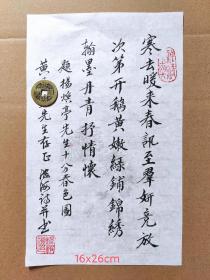 寒去暖来春訊至群妍竞放
次第开鹅黄嫩绿铺锦绣
翰墨丹青抒情怀
题杨煥亭先生十分春色图
黄
先生存正
诗并书
16x26cm